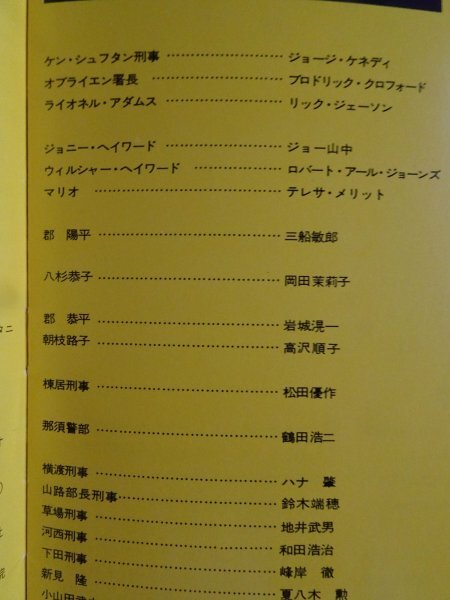 ケン・シュフタン刑事………………ジョージ・ケネディ
オブライエン署長………………ブロドリック・クロフォード
ライオネル・アダムス………………リック・ジェーソン
ジョニー・ヘイワード………………ジョー山中
ウィルシャー・ヘイワード………………ロバート・アール・ジョーンズ
マリオ………………テレサ・メリット
郡　陽平………………三船敏郎
八杉恭子………………岡田茉莉子
郡　恭平………………岩城滉一
朝枝路子………………高沢順子
棟居刑事………………松田優作
那須警部………………鶴田浩二
横渡刑事………………ハナ　肇
山路部長刑事………………鈴木瑞穂
草場刑事………………地井武男
河西刑事………………和田浩治
下田刑事………………峰岸　徹
新見　隆………………夏八木　勲